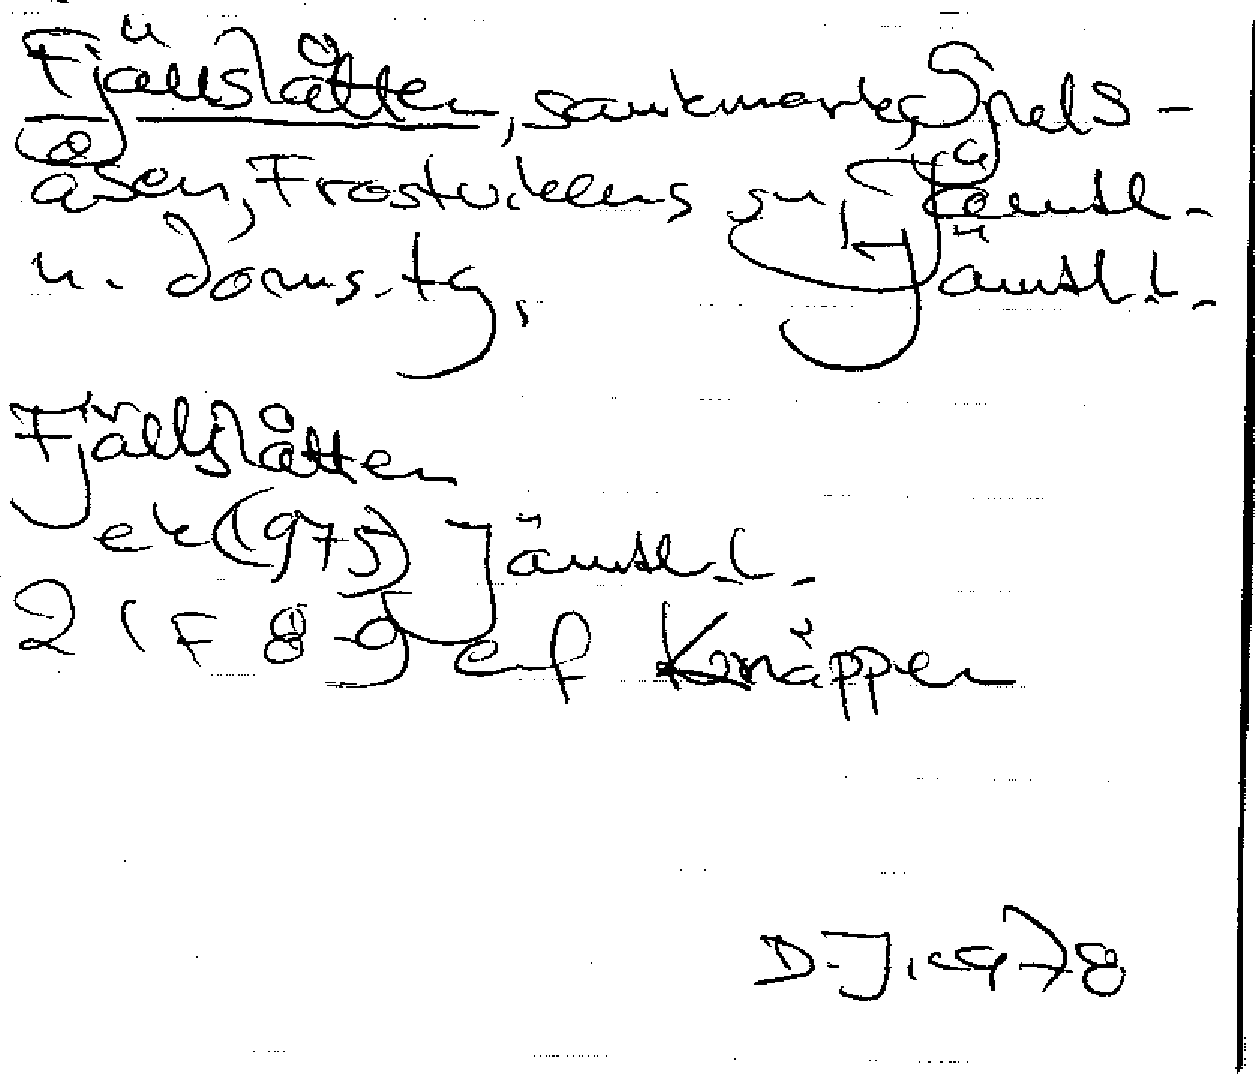 Fjällslåtten, sankmark, Spels-
åsen, Frostvikens sn, Jämtl.
n. doms.tg, Jämtl.l.
Fjällslåtten
ek (1975) Jämtl.l.
21 F 8-9 ef Knäppen
D-J. 1978